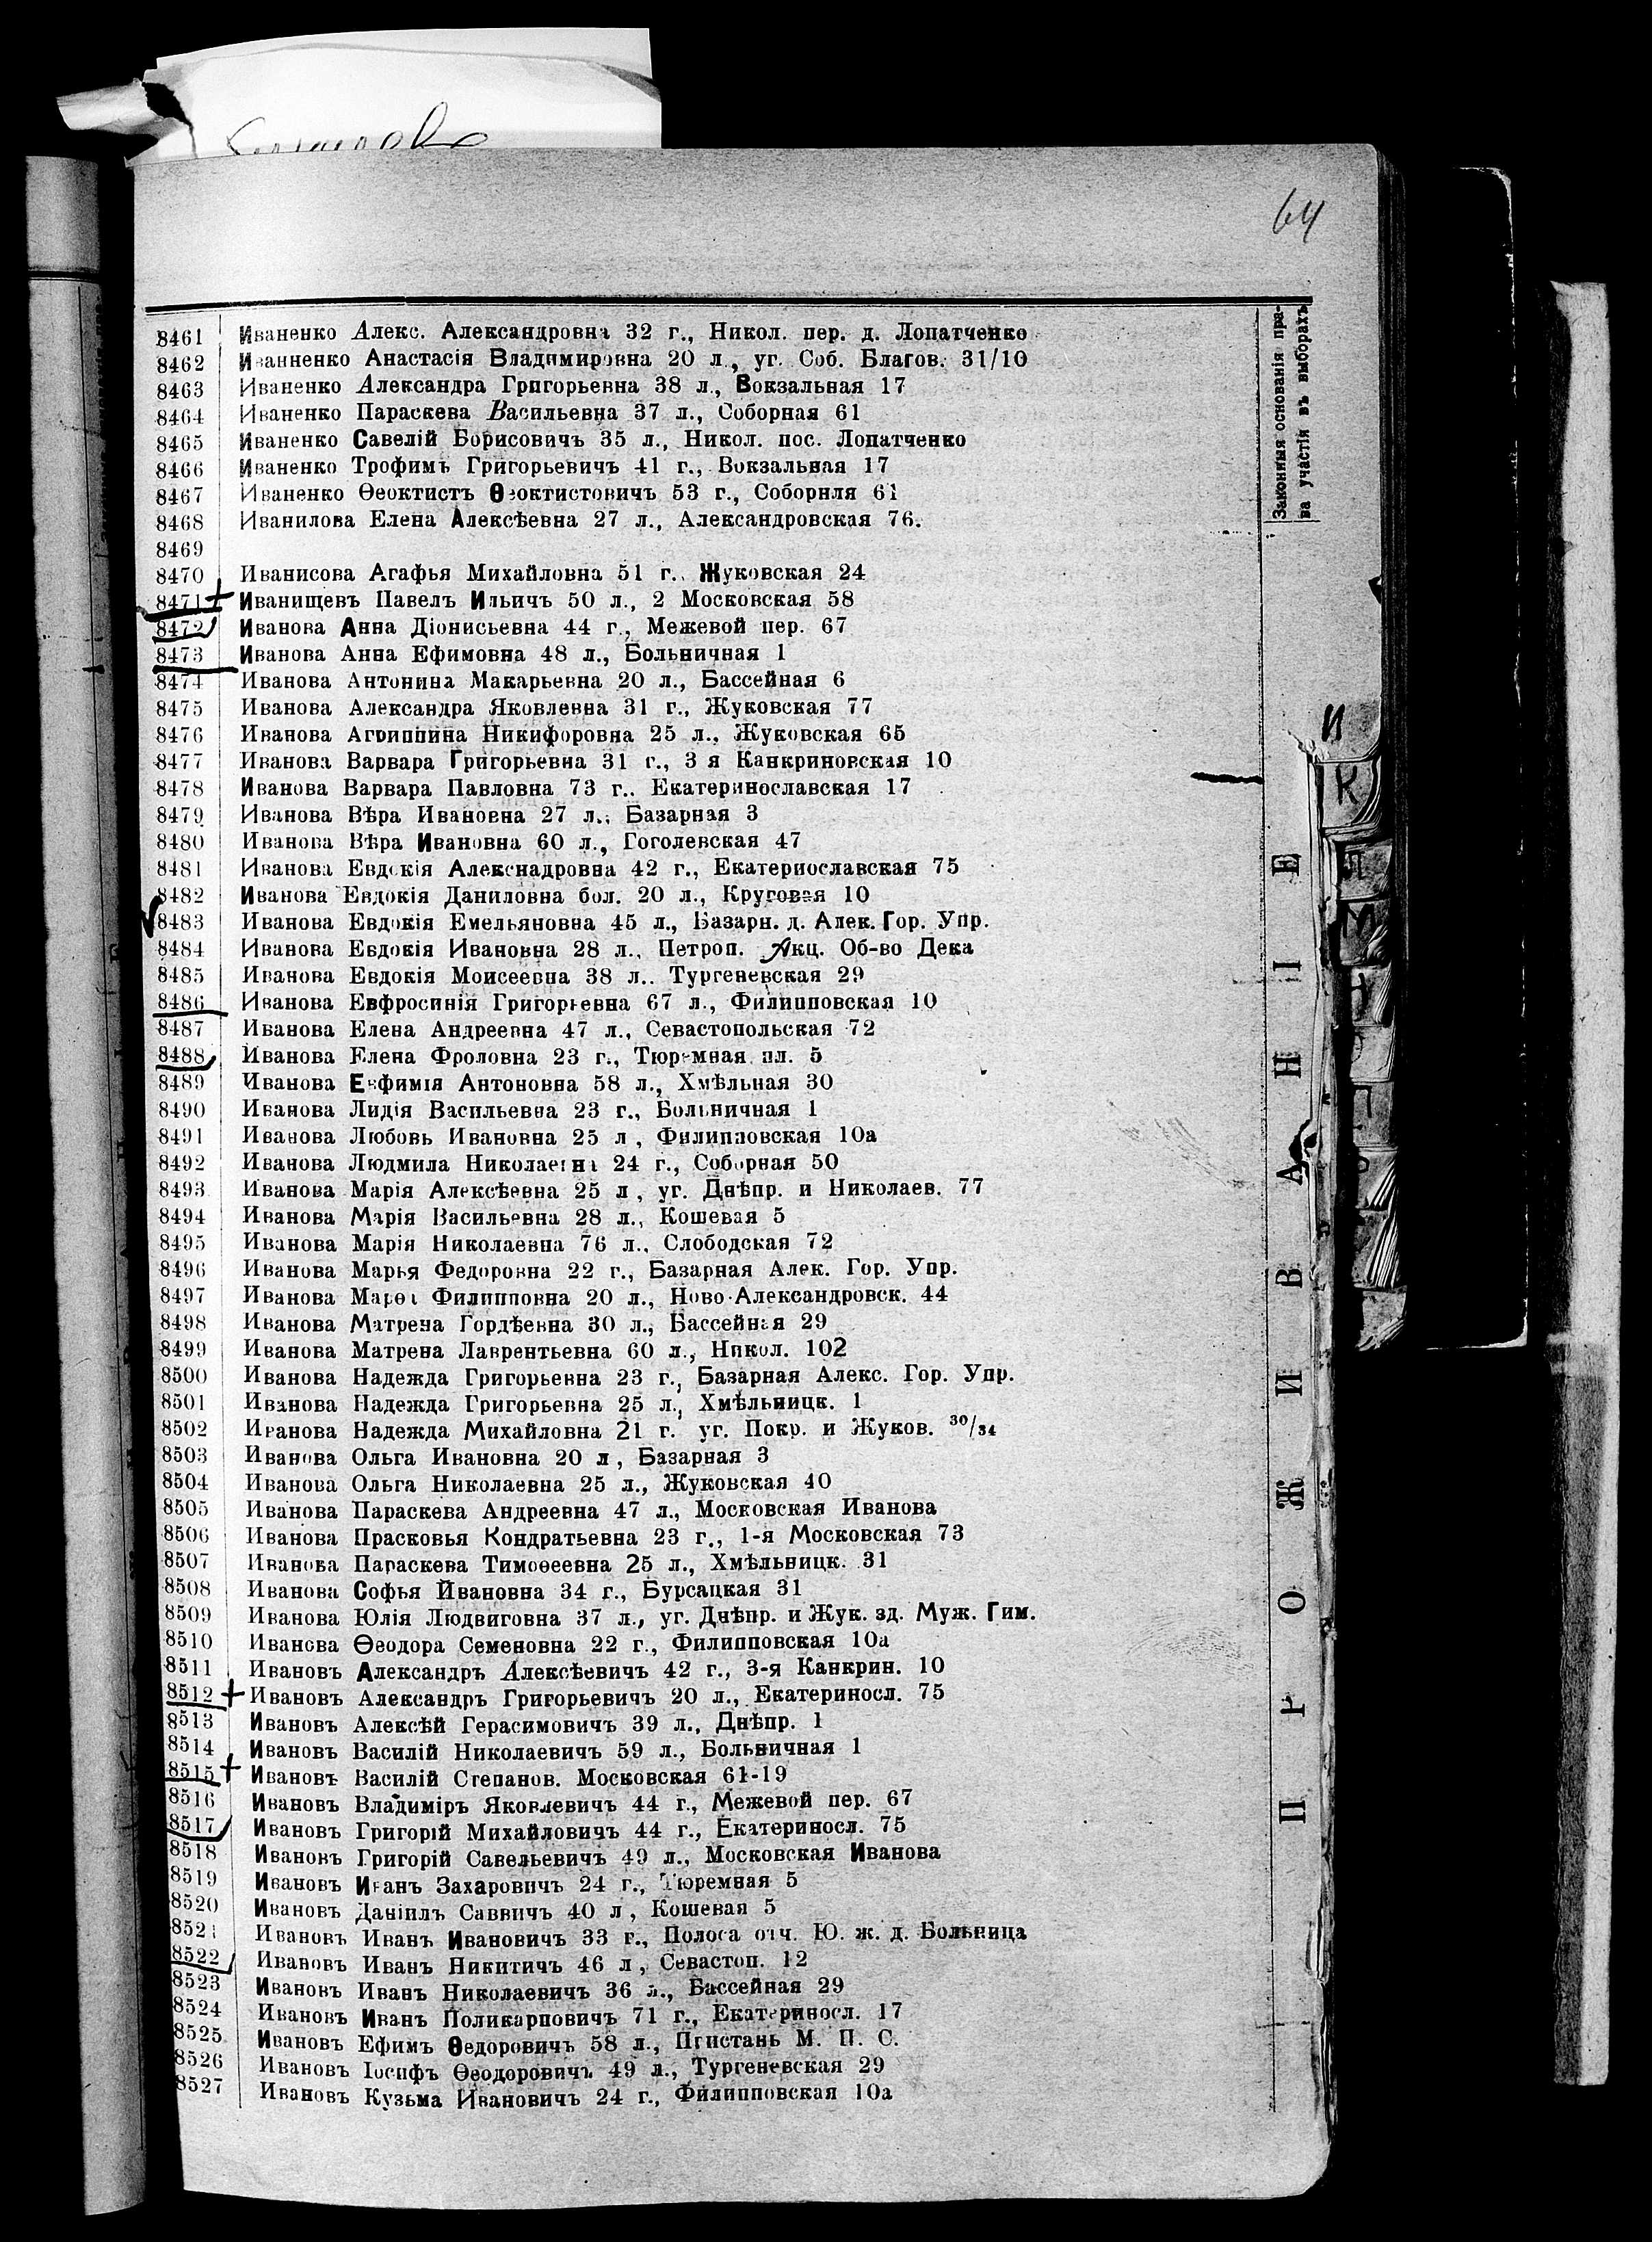 64
Законныя основанія пра-
ва участія въ выборахъ
8461 Иваненко Алекс. Александровна 32 г., Никол. пер. д. Лопатченко
8462 Иванненко Анастасія Владимировна 20 л., уг. Соб. Благов. 31/10
8463 Иваненко Александра Григорьевна 38 л., Вокзальная 17
8464 Иваненко Параскева Васильевна 37 л., Соборная 61
8465 Иваненко Савелій Борисовичъ 35 л., Никол. пос. Лопатченко
8466 Иваненко Трофимъ Григорьевичъ 41 г., Вокзальная 17
8467 Иваненко Ѳеоктистъ Ѳеоктистовичъ 53 г., Соборная 61
8468 Иванилова Елена Алексѣевна 27 л., Александровская 76.
8469
8470 Иванисова Агафья Михайловна 51 г., Жуковская 24
8471 + Иванищевъ Павелъ Ильичъ 50 л., 2 Московская 58
8472 Иванова Анна Діонисьевна 44 г., Межевой пер. 67
8473 Иванова Анна Ефимовна 48 л., Больничная 1
8474 Иванова Антонина Макарьевна 20 л., Бассейная 6
8475 Иванова Александра Яковлевна 31 г., Жуковская 77
8476 Иванова Агриппина Никифоровна 25 л., Жуковская 65
8477 Иванова Варвара Григорьевна 31 г., 3 я Канкриновская 10
8478 Иванова Варвара Павловна 73 г.. Екатеринославская 17
8479 Иванова Вѣра Ивановна 27 л., Базарная 3
8480 Иванова Вѣра Ивановна 60 л., Гоголевская 47
8481 Иванова Евдокія Алекснадровна 42 г., Екатериославская 75
8482 Иванова Евдокія Даниловна бол. 20 л., Круговая 10
8483 Иванова Евдокія Емельяновна 45 л., Базарн. д. Алек. Гор. Упр.
8484 Иванова Евдокія Ивановна 28 л., Петроп. Акц. Об-во Дека
8485 Иванова Евдокія Моисеевна 38 л.. Тургеневская 29
8486 Иванова Евфросинія Григорьевна 67 л., Филипповская 10
8487 Иванова Елена Андреевна 47 л., Севастопольская 72
8488 Иванова Елена Фроловна 23 г., Тюремная пл. 5
8489 Иванова Евфимія Антоновна 58 л., Хмѣльная 30
8490 Иванова Лидія Васильевна 23 г., Больничная 1
8491 Иванова Любовь Ивановна 25 л, Филипповская 10а
8492 Иванова Людмила Николаевна 24 г., Соборная 50
8493 Иванова Марія Алексѣевна 25 л, уг. Днѣпр. и Николаев. 77
8494 Иванова Марія Васильевна 28 л., Кошевая 5
8495 Иванова Марія Николаевна 76 л., Слободская 72
8496 Иванова Марья Федоровна 22 г., Базарная Алек. Гор. Упр.
8497 Иванова Марѳа Филипповна 20 л., Ново-Александровск. 44
8498 Иванова Матрена Гордѣевна 30 л., Бассейная 29
8499 Иванова Матрена Лаврентьевна 60 л., Никол. 102
8500 Иванова Надежда Григорьевна 23 г., Базарная Алекс. Гор. Упр.
8501 Иванова Надежда Григорьевна 25 л., Хмѣльницк. 1
8502 Иванова Надежда Михайловна 21 г. уг. Покр. и Жуков. 30/34
8503 Иванова Ольга Ивановна 20 л, Базарная 3
8504 Иванова Ольга Николаевна 25 л., Жуковская 40
8505 Иванова Параскева Андреевна 47 л., Московская Иванова
8506 Иванова Прасковья Кондратьевна 23 г., 1-я Московская 73
8507 Иванова Параскева Тимоѳеевна 25 л., Хмѣльницк. 31
8508 Иванова Софья Ивановна 34 г., Бурсацкая 31
8509 Иванова Юлія Людвиговна 37 л., уг. Днѣпр. и Жук. зд. Муж. Гим.
8510 Иванова Ѳеодора Семеновна 22 г., Филипповская 10а
8511 Ивановъ Александръ Алексѣевичъ 42 г., 3-я Канкрин. 10
8512 + Ивановъ Александръ Григорьевичъ 20 л., Екатериносл. 75
8513 Ивановъ Алексѣй Герасимовичъ 39 л., Днѣпр. 1
8514 Ивановъ Василій Николаевичъ 59 л., Больничная 1
8515 + Ивановъ Василій Степанов. Московская 61-19
8516 Ивановъ Владиміръ Яковлевичъ 44 г., Межевой пер. 67
8517 Ивановъ Григорій Михайловичъ 44 г., Екатериносл. 75
8518 Ивановъ Григорій Савельевичъ 49 л., Московская Иванова
8519 Ивановъ Иванъ Захаровичъ 24 г., Тюремная 5
8520 Ивановъ Даніилъ Саввичъ 40 л, Кошевая 5
8521 Ивановъ Иванъ Ивановичъ 33 г., Полоса отч. Ю. ж. д. Больница
8522 Ивановъ Иванъ Никитичъ 46 л, Севастоп. 12
8523 Ивановъ Иванъ Николаевичъ 36 л., Бассейная 29
8524 Ивановъ Иванъ Поликарповичъ 71 г., Екатериносл. 17
8525 Ивановъ Ефимъ Ѳедоровичъ 58 л., Пристань М. П. С.
8526 Ивановъ Іосифъ Ѳеодоровичъ 49 л., Тургеневская 29
8527 Ивановъ Кузьма Ивановичъ 24 г., Филипповская 10а
ПРОЖИВАНІЕ
И
К
Л
М
Н
О
П
Р